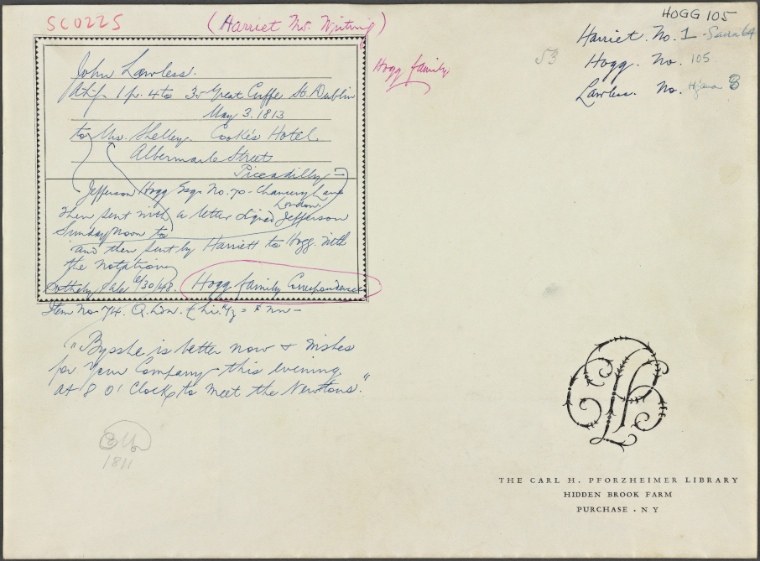 SC0225
(Harriet No. Writing)
HOGG 105
Harriet No. 1
Hogg. No. 105
Lawless No. 8
53
Hogg family
John Lawless.
1 p. 4to 35 Great Cuffe St Dublin
May 3. 1813
to Mrs. Shelley. Cooke's Hotel.
Albermarle Street
Piccadilly
Jefferson Hogg Esqr No. 70 - Chancery Lane
London
then sent with a letter signed Jefferson
Sunday noon to
and then sent by Harriett to Hogg with
the notation
Sotheby Sale 6/30/48. Hogg family Correspondence
Item No. 74.
"Bysshe is better now & wishes
for your Company this evening
at 8 O'Clock to meet the Newtons."
1811
CHP
THE CARL H. PFORZHEIMER LIBRARY
HIDDEN BROOK FARM
PURCHASE · N Y